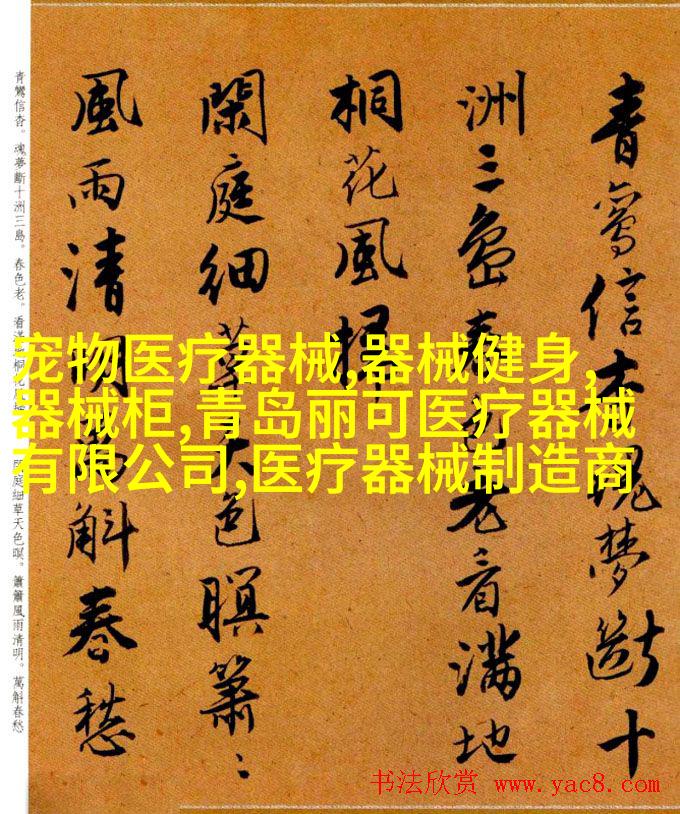 青鸞信杳魂夢斷十
洲三島春色老看滿地
桐花風掃
閑庭細草天色瞑簫〻
風雨清明萬斛春愁
青鸞信杳。魂夢斷十洲三島。春色老。看滿地桐花風 庭細草天色暝。簫簫風雨清明。萬斛春愁
宠物医疗器械,器械健身,
器械柜,青岛丽可医疗器械
有限公司,医疗器械制造商
书法欣赏 www.yac8.com